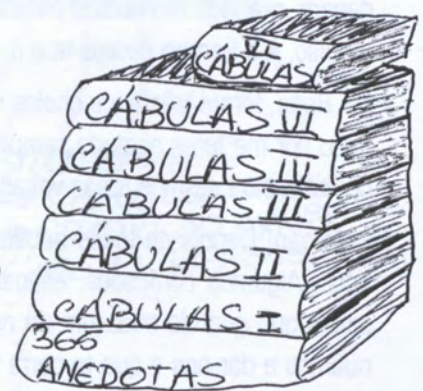 VI
CÁBULAS
CÁBULAS VI
CÁBULAS IV
CÁBULAS III
CÁBULAS II
CÁBULAS I
366
ANEDOTAS